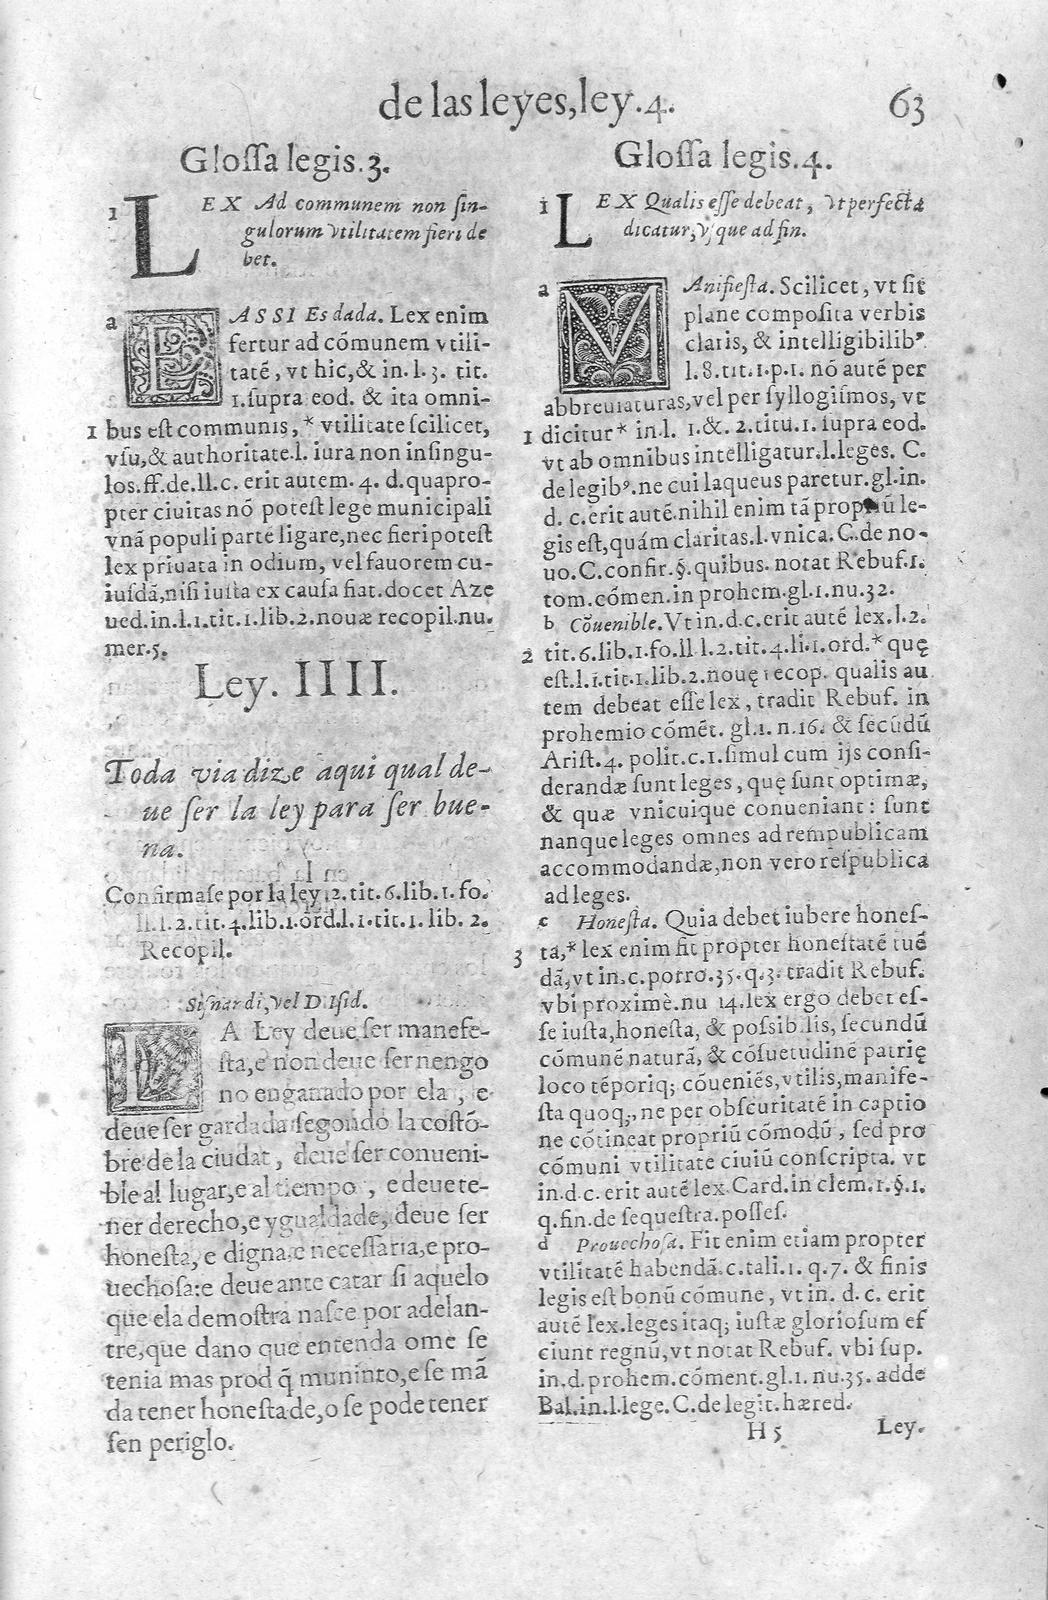 de las leyes, ley.4. 63
Glossa legis.3.
1 LEX Ad communem non sin-
gulorum vtilitatem fieri de
bet.
a EASSI Es dada. Lex enim
fertur ad cõmunem vtili-
tatẽ, vt hic, & in. l. 3. tit.
1. supra eod. & ita omni-
1 bus est communis, * vtilitate scilicet,
vsu, & authoritate. l. iura non in singu-
los. ff. de. ll. c. erit autem. 4. d. quapro-
pter ciuitas nõ potest lege municipali
vnã populi partẽ ligare, nec fieri potest
lex priuata in odium, vel fauorem cu-
iusdã, nisi iusta ex causa fiat. docet Aze
ued. in. l. 1. tit. 1. lib. 2. nouæ recopil. nu.
mer. 5.
Ley. IIII.
Toda via dize aqui qual de-
ue ser la ley para ser bue-
na.
Confirmase por la ley. 2. tit. 6. lib. 1. fo.
ll. l. 2. tit. 4. lib. 1. ord. l. 1. tit. 1. lib. 2.
Recopil.
Sisnandi, vel D Isid.
LA Ley deue ser manefe-
sta, e non deue ser nengo
no enganado por ela, e
deue ser gardada segondo la costõ-
bre de la ciudat, deue ser conueni-
ble al lugar, e al tiempo, e deue te-
ner derecho, e ygualdade, deue ser
honesta, e digna e necessaria, e pro-
uechosa: e deue ante catar si aquelo
que ela demostra nasce por adelan-
tre, que dano que entenda ome se
tenia mas prod q̃ muninto, e se mã
da tener honestade, o se pode tener
sen periglo.
Glossa legis.4.
1 LEX Qualis esse debeat, vt perfecta
dicatur, vsque ad fin.
a MAnifiesta. Scilicet, vt sit
plane composita verbis
claris, & intelligibilibꝰ
l. 8. tit. 1. p. 1. nõ autẽ per
abbreuiaturas, vel per syllogismos, vt
1 dicitur * in. l. 1. & 2. titu. 1. supra eod.
vt ab omnibus intelligatur. l. leges. C.
de legibꝰ. ne cui laqueus paretur. gl. in.
d. c. erit autẽ. nihil enim tã propriũ le-
gis est, quám claritas. l. vnica. C. de no-
uo. C. confir. §. quibus. notat Rebuf. 1.
tom. cómen. in prohem. gl. 1. nu. 32.
b Cõuenible. Vt in. d. c. erit autẽ lex. l. 2.
2 tit. 6. lib. 1. fo. ll l. 2. tit. 4. li. 1. ord. * quę
est. l. 1. tit. 1. lib. 2. nouę recop. qualis au
tem debeat esse lex, tradit Rebuf. in
prohemio cómẽt. gl. 1. n. 16. & secũdũ
Arist. 4. polit. c. 1. simul cum ijs consi-
derandæ sunt leges, quę sunt optimæ,
& quæ vnicuique conueniant: sunt
nanque leges omnes ad rempublicam
accommodandæ, non vero respublica
ad leges.
c Honesta. Quia debet iubere hones-
3 ta, * lex enim fit propter honestatẽ tuẽ
dã, vt in. c. porro. 35. q. 3. tradit Rebuf.
vbi proximè. nu 14. lex ergo debet es-
se iusta, honesta, & possibilis, secundũ
cómunẽ naturã, & cósuetudinẽ patrię
loco tẽporiq; cóueniẽs, vtilis, manife-
sta quoq;, ne per obscuritatẽ in captio
ne cõtineat propriũ cómodũ, sed pro
cómuni vtilitate ciuiũ conscripta. vt
in. d. c. erit autẽ lex. Card. in clem. 1. §. 1.
q. fin. de sequestra. posses.
d Prouechosa. Fit enim etiam propter
vtilitatẽ habendã. c. tali. 1. q. 7. & finis
legis est bonũ cómune, vt in. d. c. erit
autẽ lex. leges itaq; iustæ gloriosum ef
ficiunt regnũ, vt notat Rebuf. vbi sup.
in. d. prohem. cóment. gl. 1. nu. 35. adde
Bal. in. l. lege. C. de legit. hæred.
H 5 Ley.